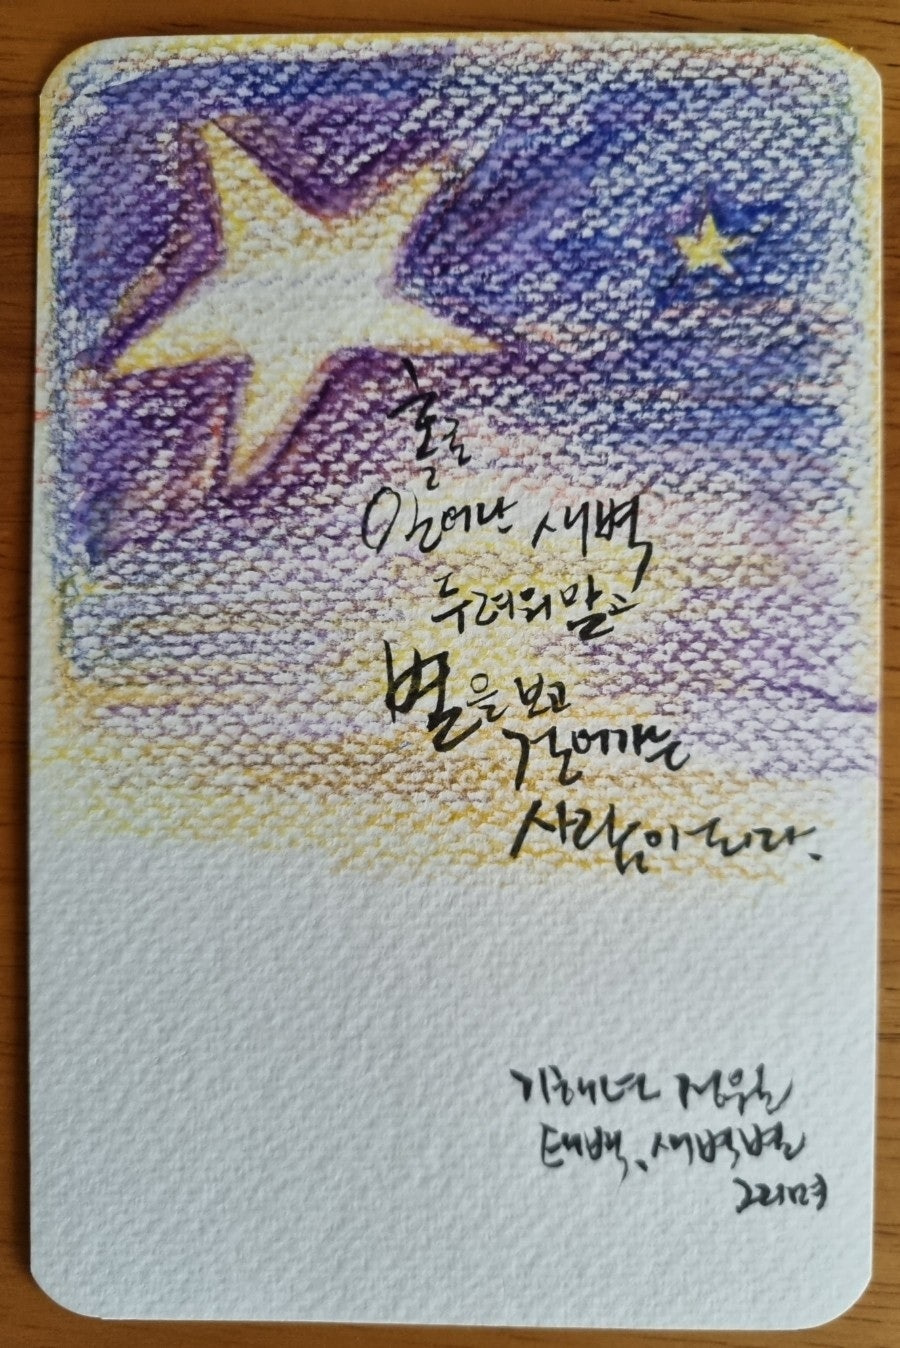 홀로
일어난 새벽
두려워말고
별을 보고
걸어가는
사람이 되라.
기해년 정월
태백, 새벽별
그리며